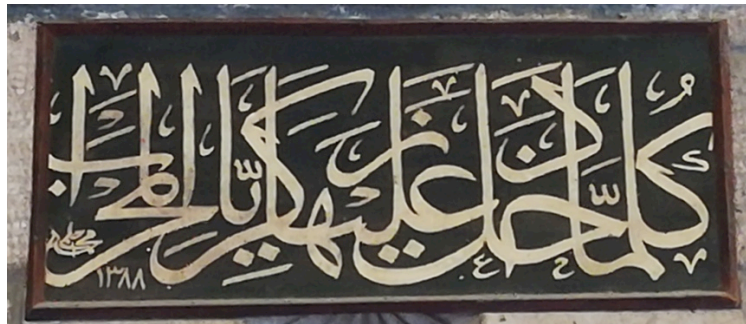 كُلَّمَا دَخَلَ عَلَيْهَا زَكَرِيَّا الْمِحْرَابَ
١٣٨٨